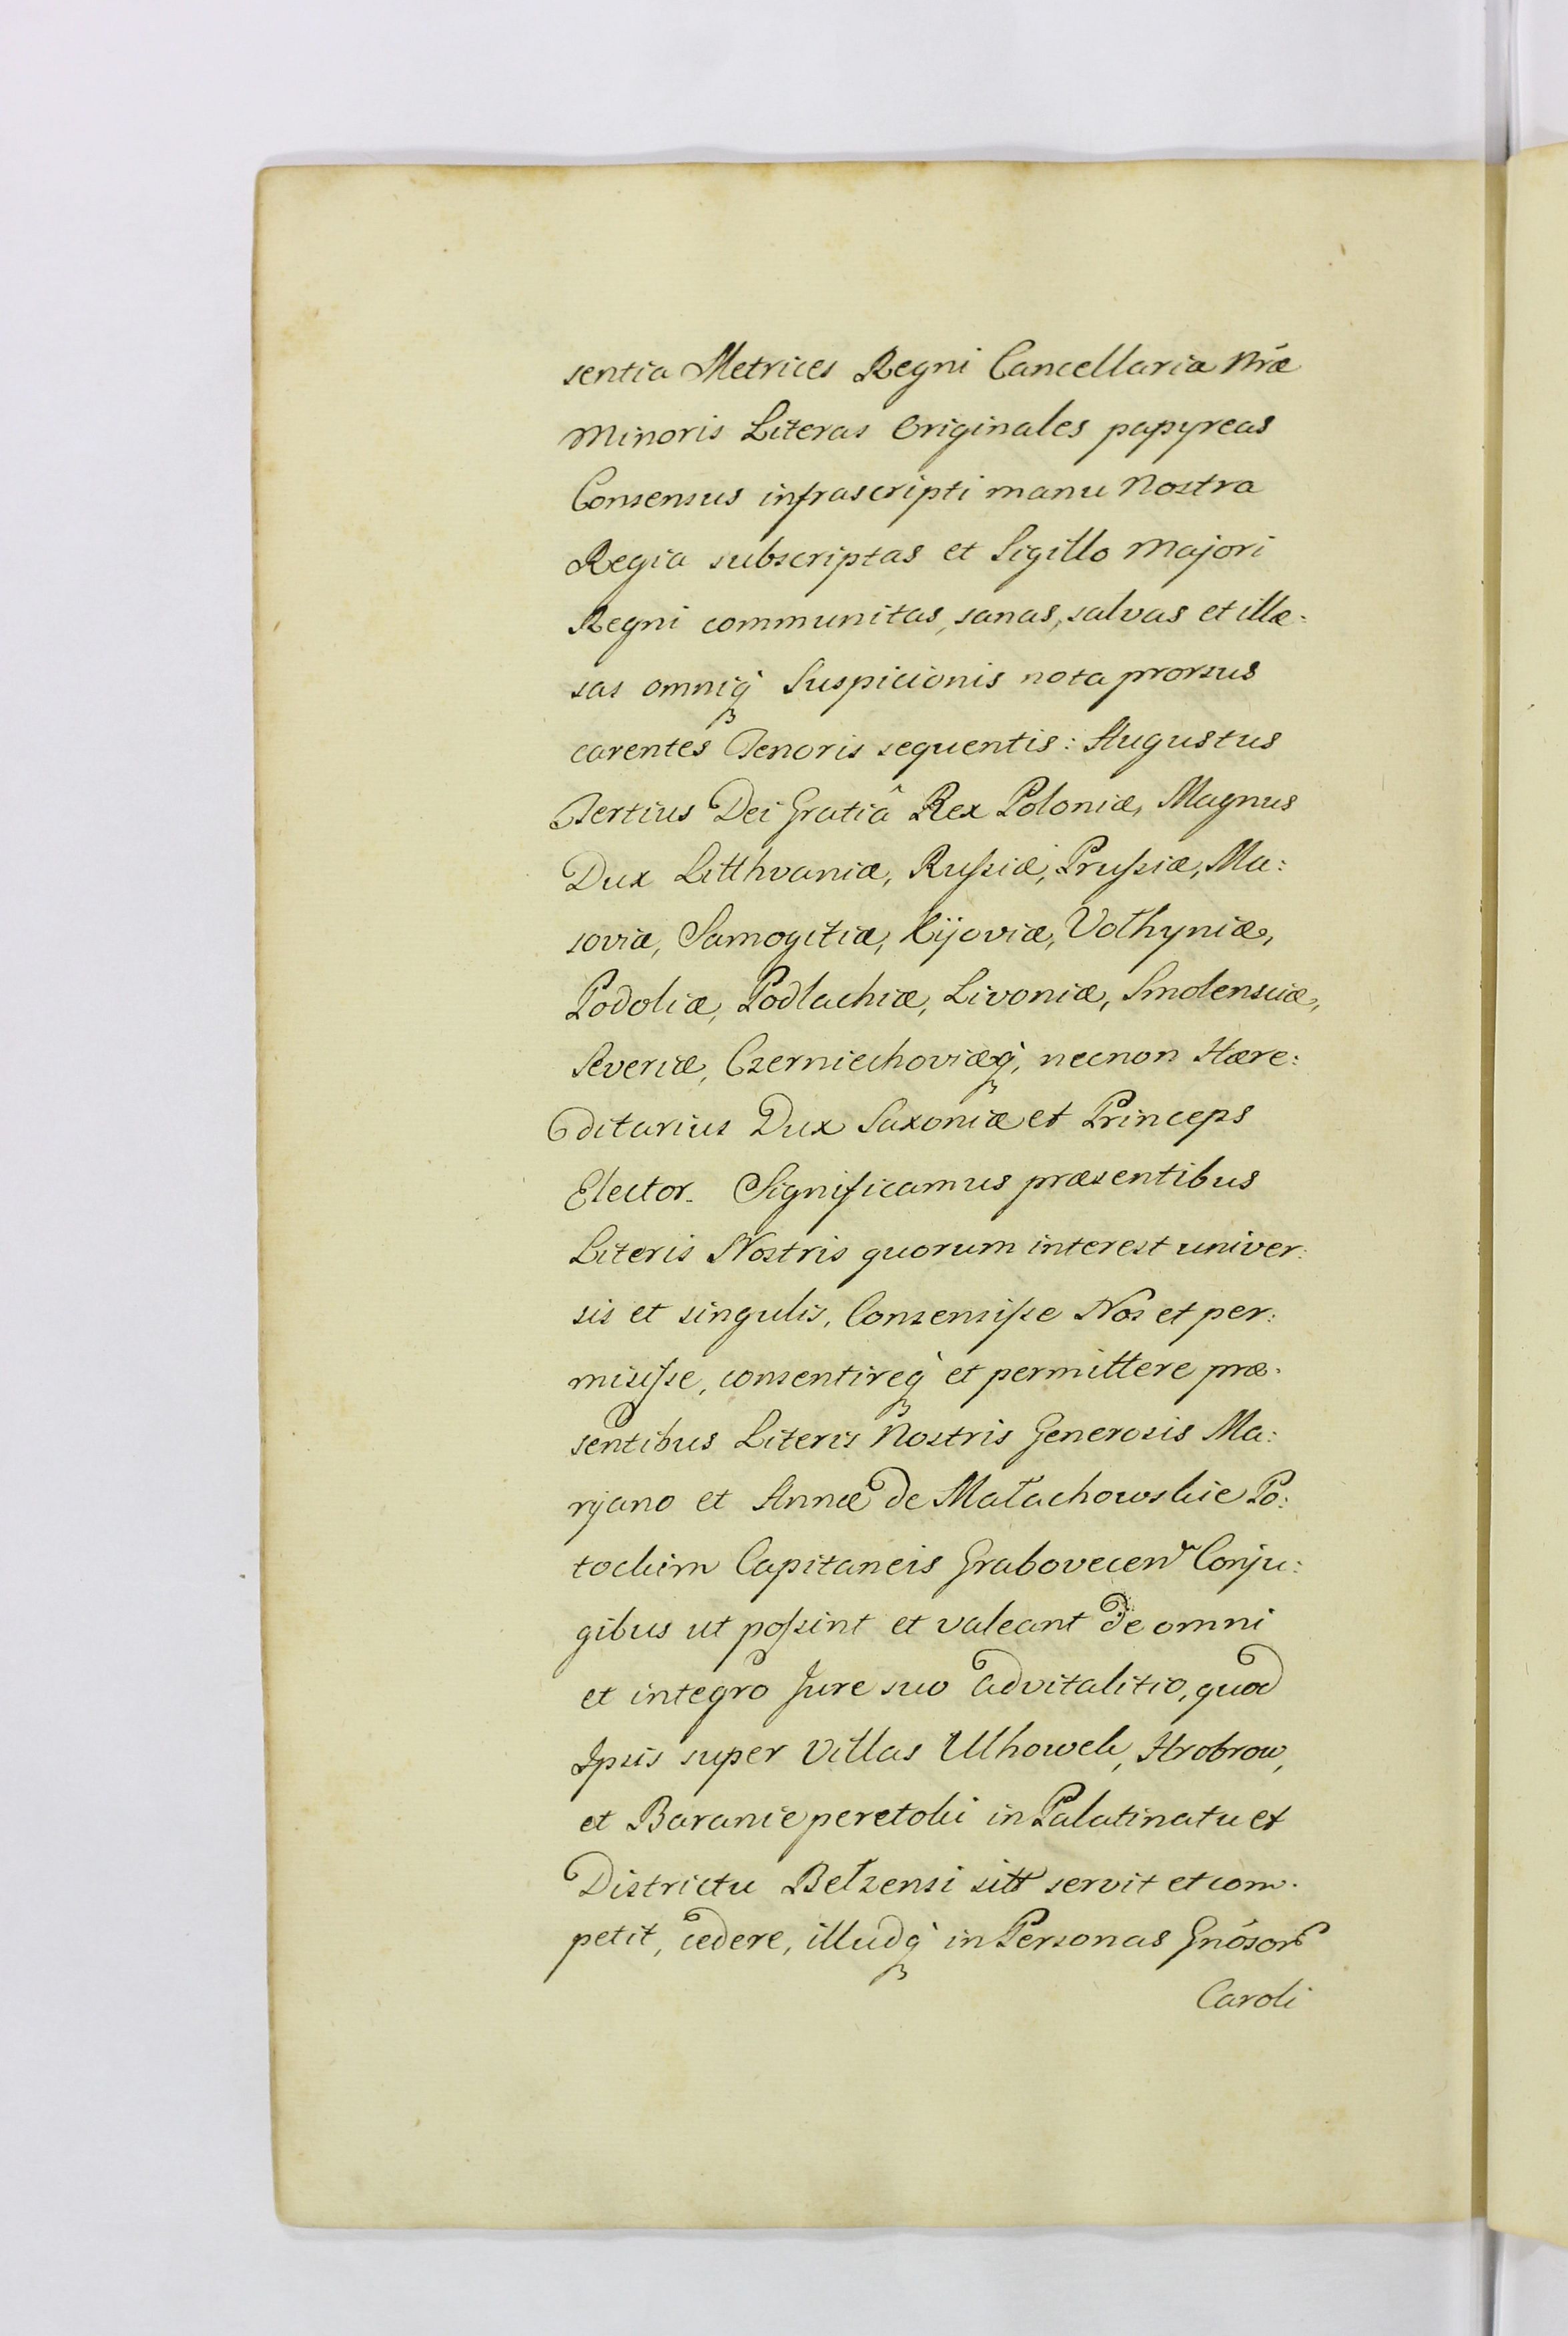 sentia Metrices Regni Cancellariæ Nræ
Minoris Literas Originales papyreas
Consensus infrascripti manu Nostra
Regia subscriptas et Sigillo Majori
Regni communitas, sanas, salvas et illæ:
sas omniq̀ꝫ Suspicionis nota prorsus
carentes Tenoris sequentis: Augustus
Tertius Dei Gratiâ Rex Poloniæ, Magnus
Dux Litthvaniæ, Rußiæ, Prußiæ, Ma:
soviæ, Samogitiæ, Kijoviæ, Volhyniæ,
Podoliæ, Podlachiæ, Livoniæ, Smolensciæ,
Severiæ, Czerniechoviæq̀ꝫ, necnon Hære:
ditarius Dux Saxoniæ et Princeps
Elector. Significamus præsentibus
Literis Nostris quorum interest univer:
sis et singulis, Consensiße Nos et per:
misiße, consentireq̀ꝫ et permittere præ:
sentibus Literis Nostris Generosis Ma:
ryano et Annæ de Małachowskie Po:
tockim Capitaneis Grabovecen Conju:
gibus ut poßint et valeant de omni
et integro Jure suo advitalitio, quod
Ipsis super Villas Ulhowek, Hrobrow,
et Baranie peretoki in Palatinatu et
Districtu Bełzensi sitt servit et com:
petit, cedere, illudq̀ꝫ in Personas Gnósor
Caroli